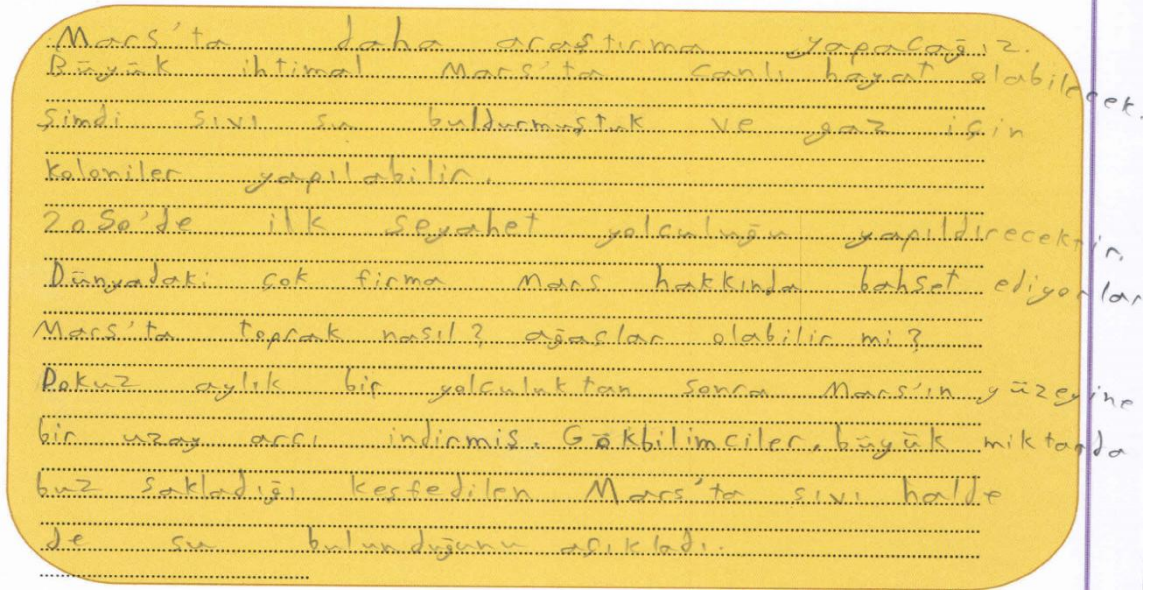 Mars'ta daha araştırma yapacağız.
Büyük ihtimal Mars'ta canlı hayat olabilecek.
Şimdi sıvı su buldurmuştuk ve gaz için
koloniler yapılabilir.
2050'de ilk seyahet yolculuğu yapıldırecektir.
Dünyadaki çok firma Mars hakkında bahset ediyorlar
Mars'ta toprak nasıl? ağaçlar olabilir mi?
Dokuz aylık bir yolculuktan sonra Mars'ın yüzeyine
bir uzay arcı indirmiş. Gökbilimciler, büyük miktarda
buz sakladığı keşfedilen Mars'ta sıvı halde
de su bulunduğunu açıkladı.